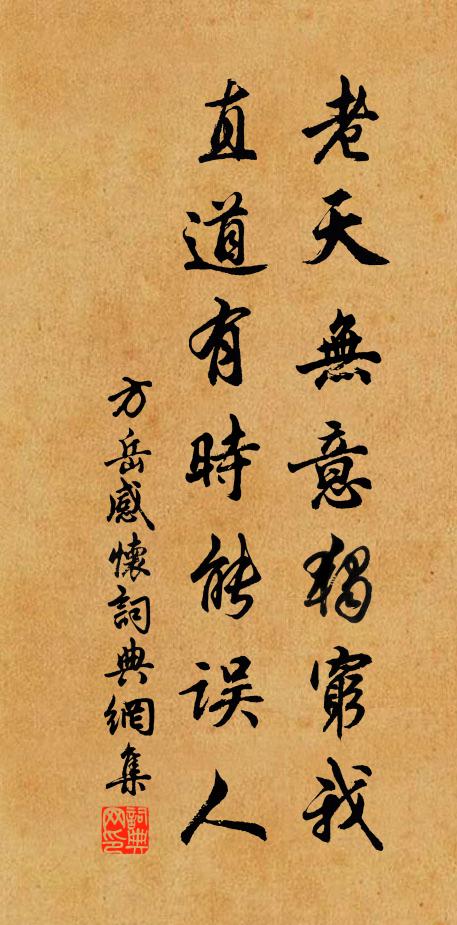 老天無意獨窮我
直道有時能誤人
方岳感懷詞典網集
詞典网印